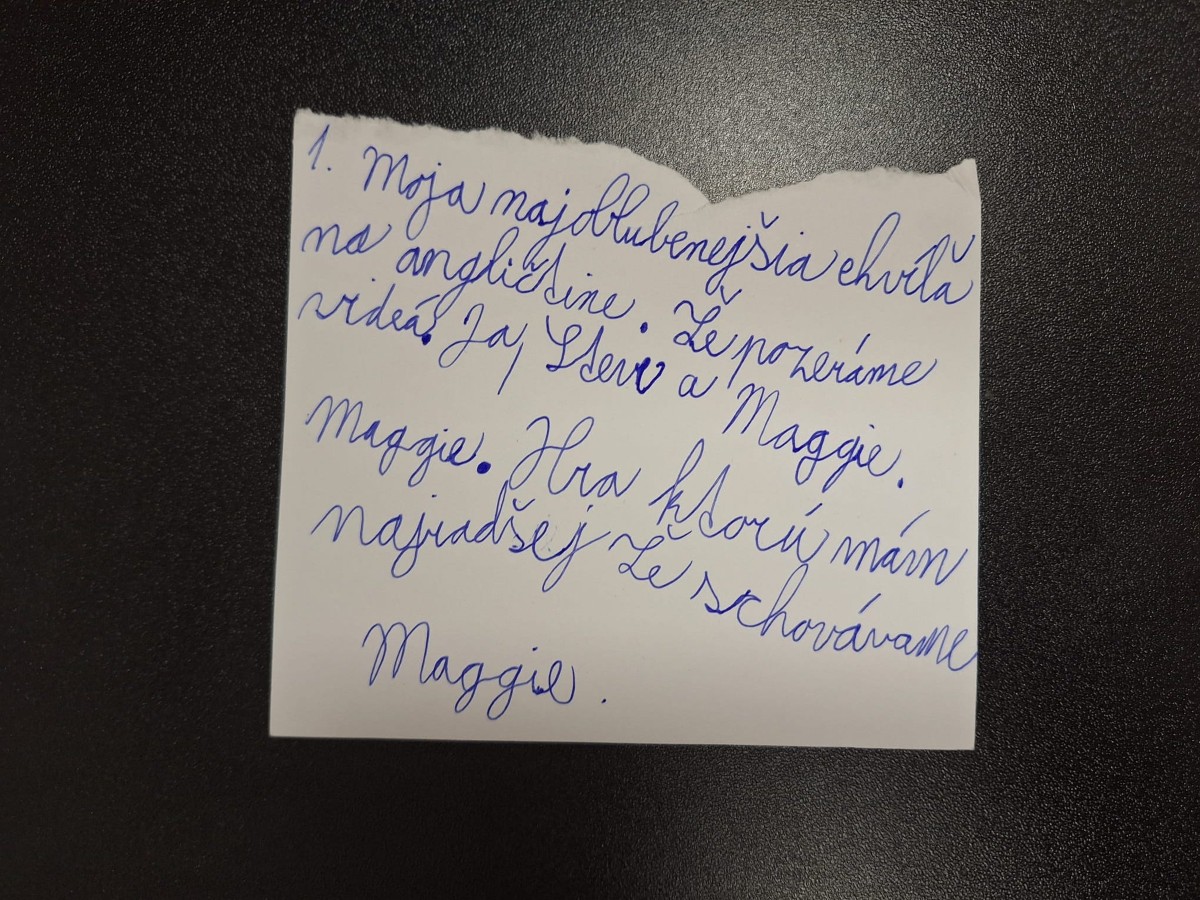 1. Moja najoblubenejšia chvílà
na angličtine. Že pozeráme
videá. Ja, Steve a Maggie.
Maggie. Hra ktorú mám
najradšej Že schovávame
Maggie.